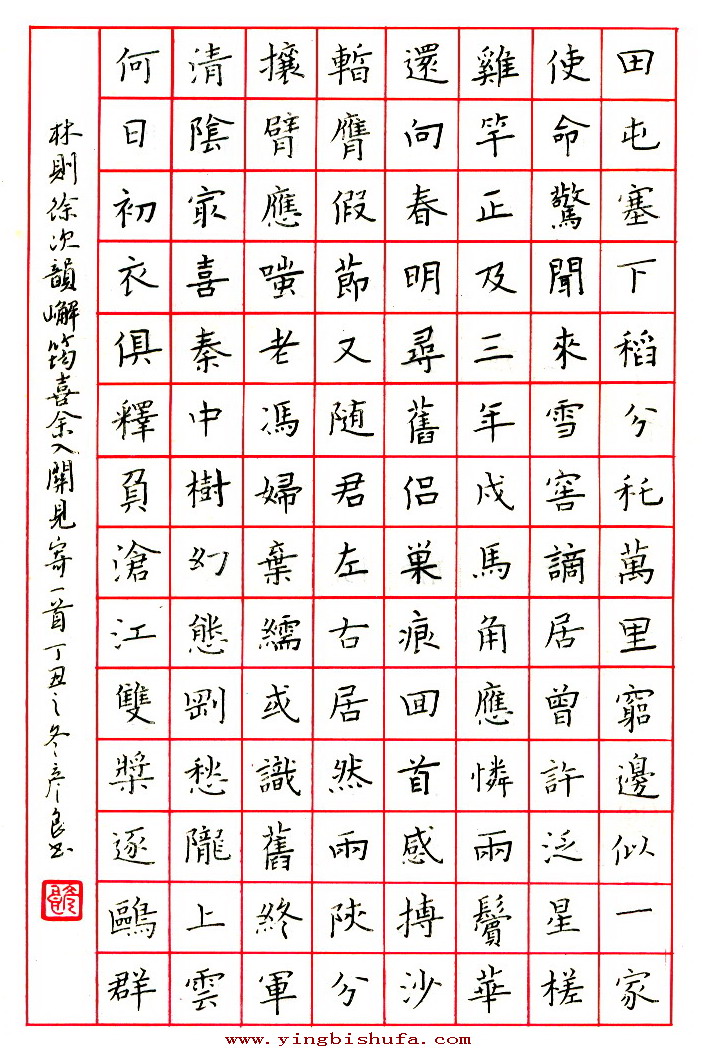 田屯塞下稻分秅萬里窮邊似一家
使命驚聞來雪窖謫居曾許泛星槎
雞竿正及三年戍馬角應憐兩鬢華
還向春明尋舊侶巢痕囬首感摶沙
暫膺假節又随君左右居然兩陝分
攘臂應嗤老馮婦棄繻或識舊終軍
清陰冣喜秦中樹幻態剛愁隴上雲
何日初衣俱釋負滄江雙槳逐鷗群
林則徐次韻嶰筠喜余入關見寄一首丁丑之冬彥良書
www.yingbishufa.com